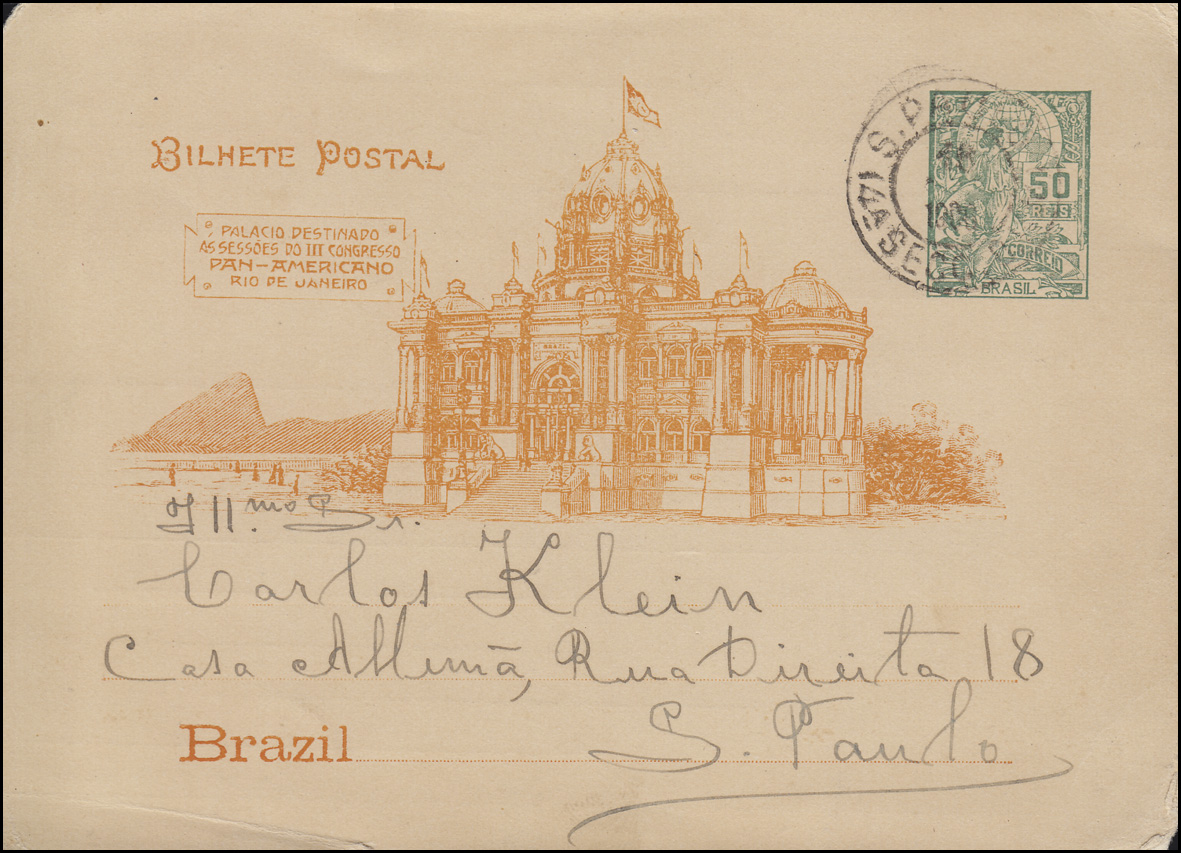 BILHETE POSTAL
PALACIO DESTINADO
AS SESSÕES DO III CONGRESSO
PAN-AMERICANO
RIO DE JANEIRO
50
REIS
CORREIO
BRASIL
BRAZIL
Ill.mo Sr.
Carlos Klein
Casa Allemã, Rua Direita 18
S. Paulo
Brazil